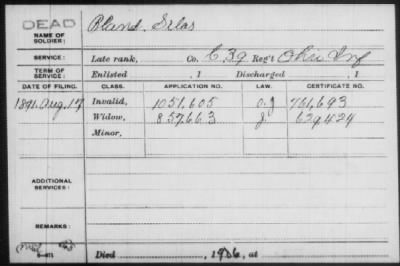 DEAD
NAME OF SOLDIER: Plant, Silas
SERVICE: Late rank, Co. C 39 Reg't Ohio Inf
TERM OF SERVICE: Enlisted , 1 Discharged , 1
DATE OF FILING. CLASS. APPLICATION NO. LAW. CERTIFICATE NO.
1891 Aug. 17 Invalid, 1051,605 761,693
Widow, 857,663 629,424
Minor,
ADDITIONAL SERVICES:
REMARKS:
Died , 1906, at